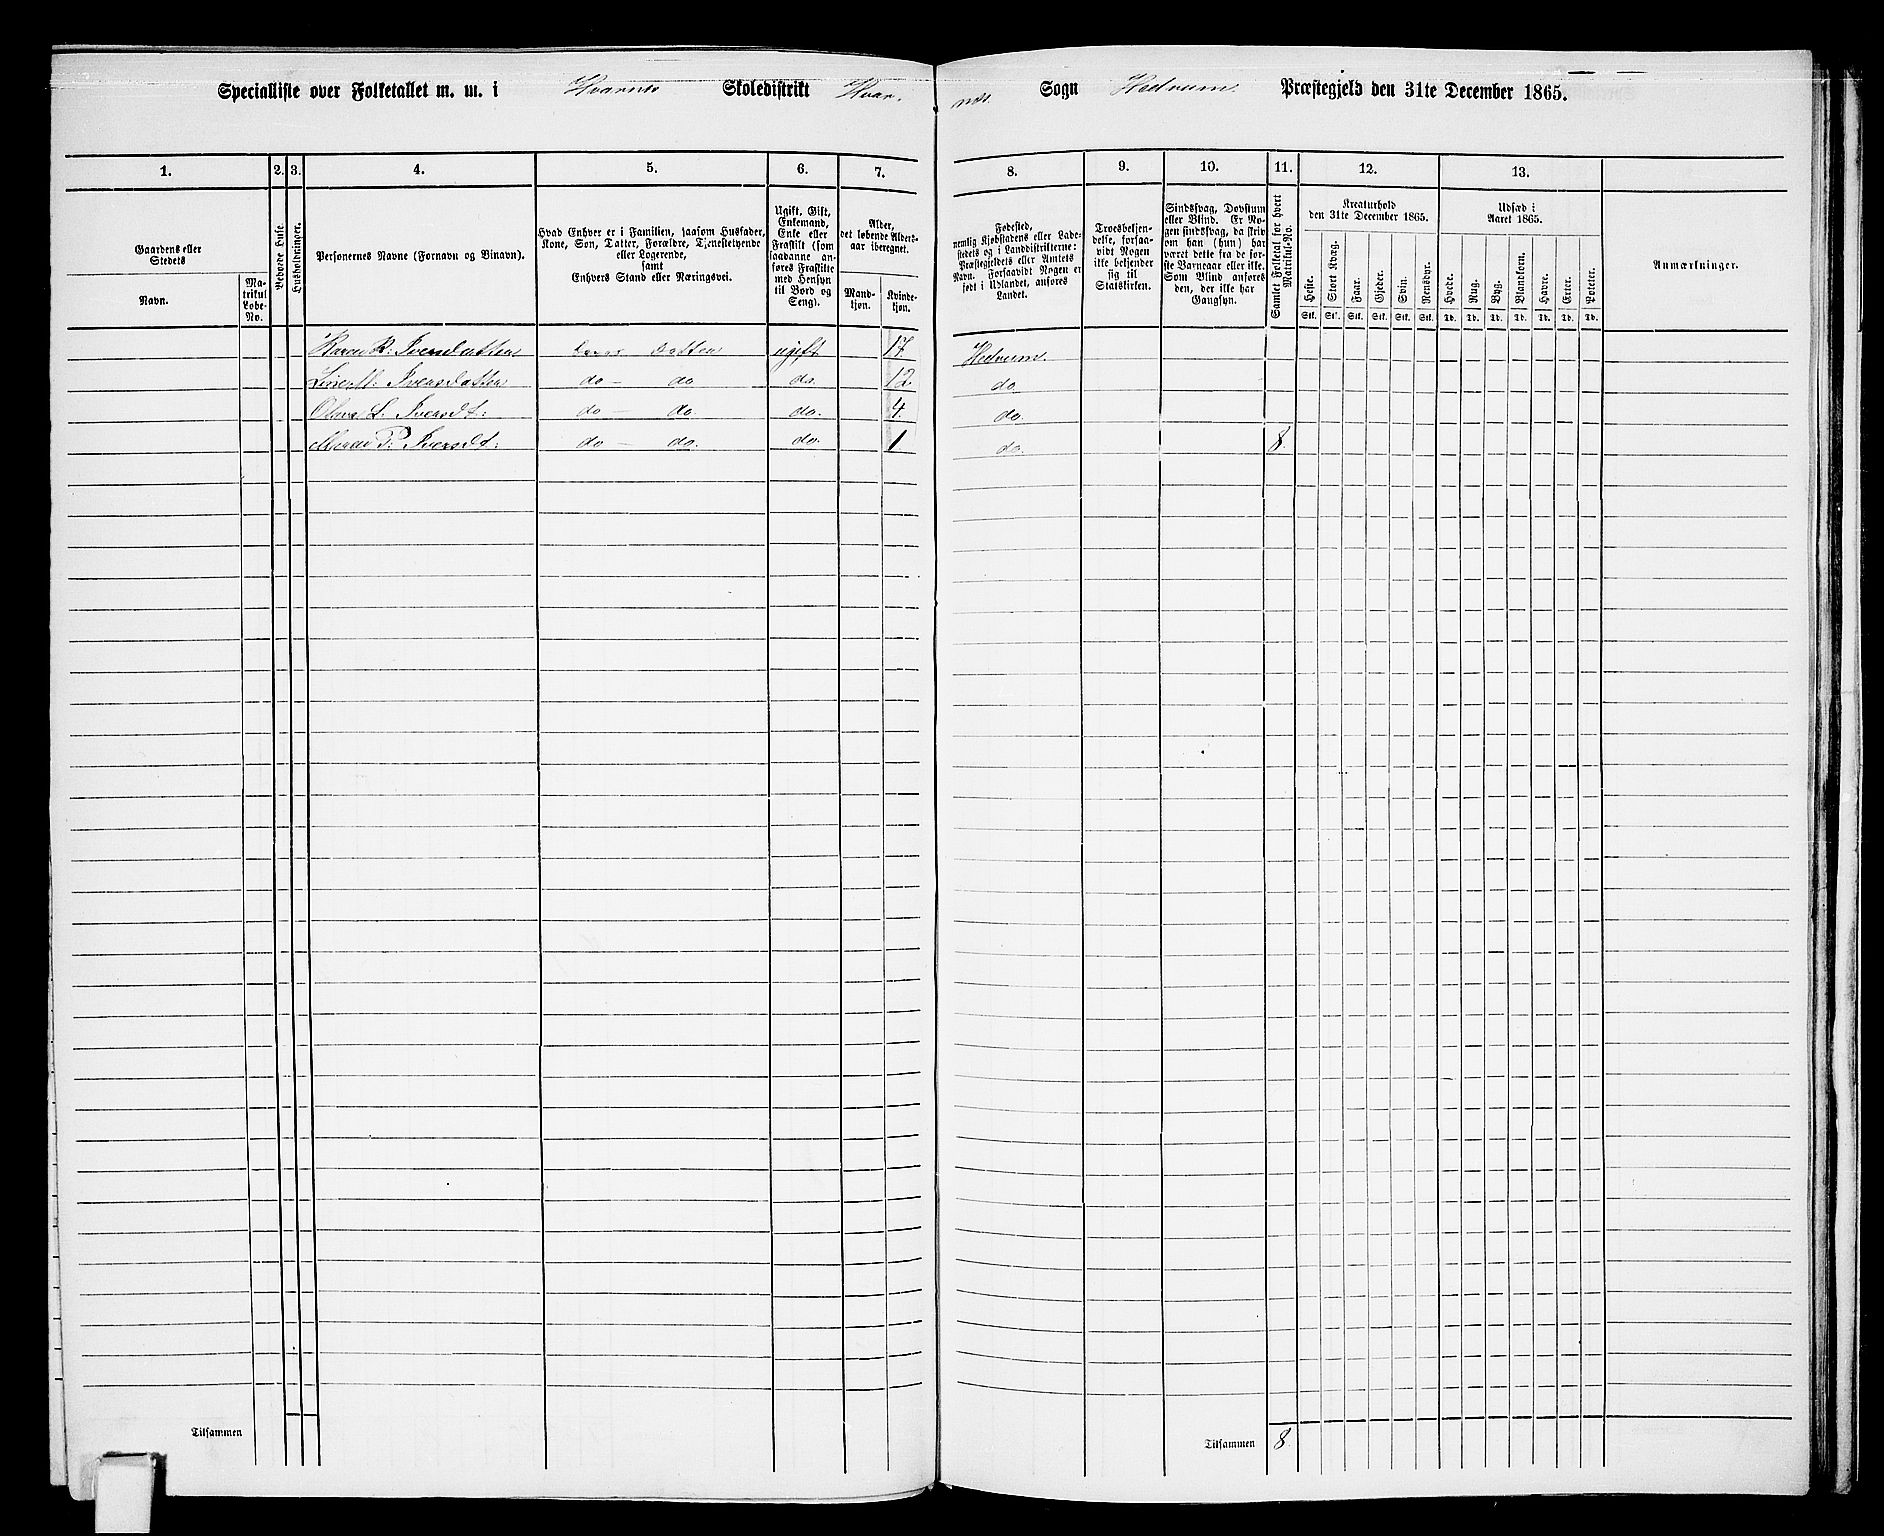 Specialliste over Folketallet m. m. i Hvarnes Skoledistrikt Hvar- nes Sogn Hedrum Præstegjeld den 31te December 1865.
1. 2. 3. 4. 5. 6. 7. 8. 9. 10. 11. 12. 13.
Gaardens eller
Stedets
Navn.
Ma-
trikul
Løbe-
No.
Beboede Huse.
Husholdninger.
Personernes Navne (Fornavn og Binavn).
Hvad Enhver er i Familien, saasom Husfader,
Kone, Søn, Datter, Forældre, Tjenestetyende
eller Logerende,
samt
Enhvers Stand eller Næringsvei.
Ugift, Gift,
Enkemand,
Enke eller
Fraskilt (som
saadanne an-
føres Fraskilte
med Hensyn
til Bord og
Seng).
Alder,
det løbende Alders-
aar iberegnet.
Mand-
kjøn.
Kvinde-
kjøn.
Fødested,
nemlig Kjøbstadens eller Lade-
stedets og i Landdistrikterne:
Præstegjeldets eller Amtets
Navn. Forsaavidt Nogen er
født i Udlandet, anføres
Landet.
Troesbekjen-
delse, forsaa-
vidt Nogen
ikke bekjender
sig til
Statskirken.
Sindssvag, Døvstum
eller Blind. Er No-
gen sindssvag, da skriv
om han (hun) har
været dette fra de før-
ste Barneaar eller ikke.
Som Blind anføres
den, der ikke har
Gangsyn.
Samlet Folketal for hvert
Matrikul-No.
Kreaturhold
den 31te December 1865.
Heste. Stort Kvæg. Faar. Gjeder. Svin. Rensdyr.
Stk. Stk. Stk. Stk. Stk. Stk.
Udsæd i
Aaret 1865.
Hvede. Rug. Byg. Blandkorn. Havre. Erter. Poteter.
Td. Td. Td. Td. Td. Td. Td.
Anmærkninger.
Karen K. Iversdatter Datter ugift 17 Hedrum.
Iversdatter do — do do. 12 do.
L. Iversdt: do — do do. 4. do.
Iversdt: do — do. do. 1 do. 8.
Tilsammen Tilsammen 8.